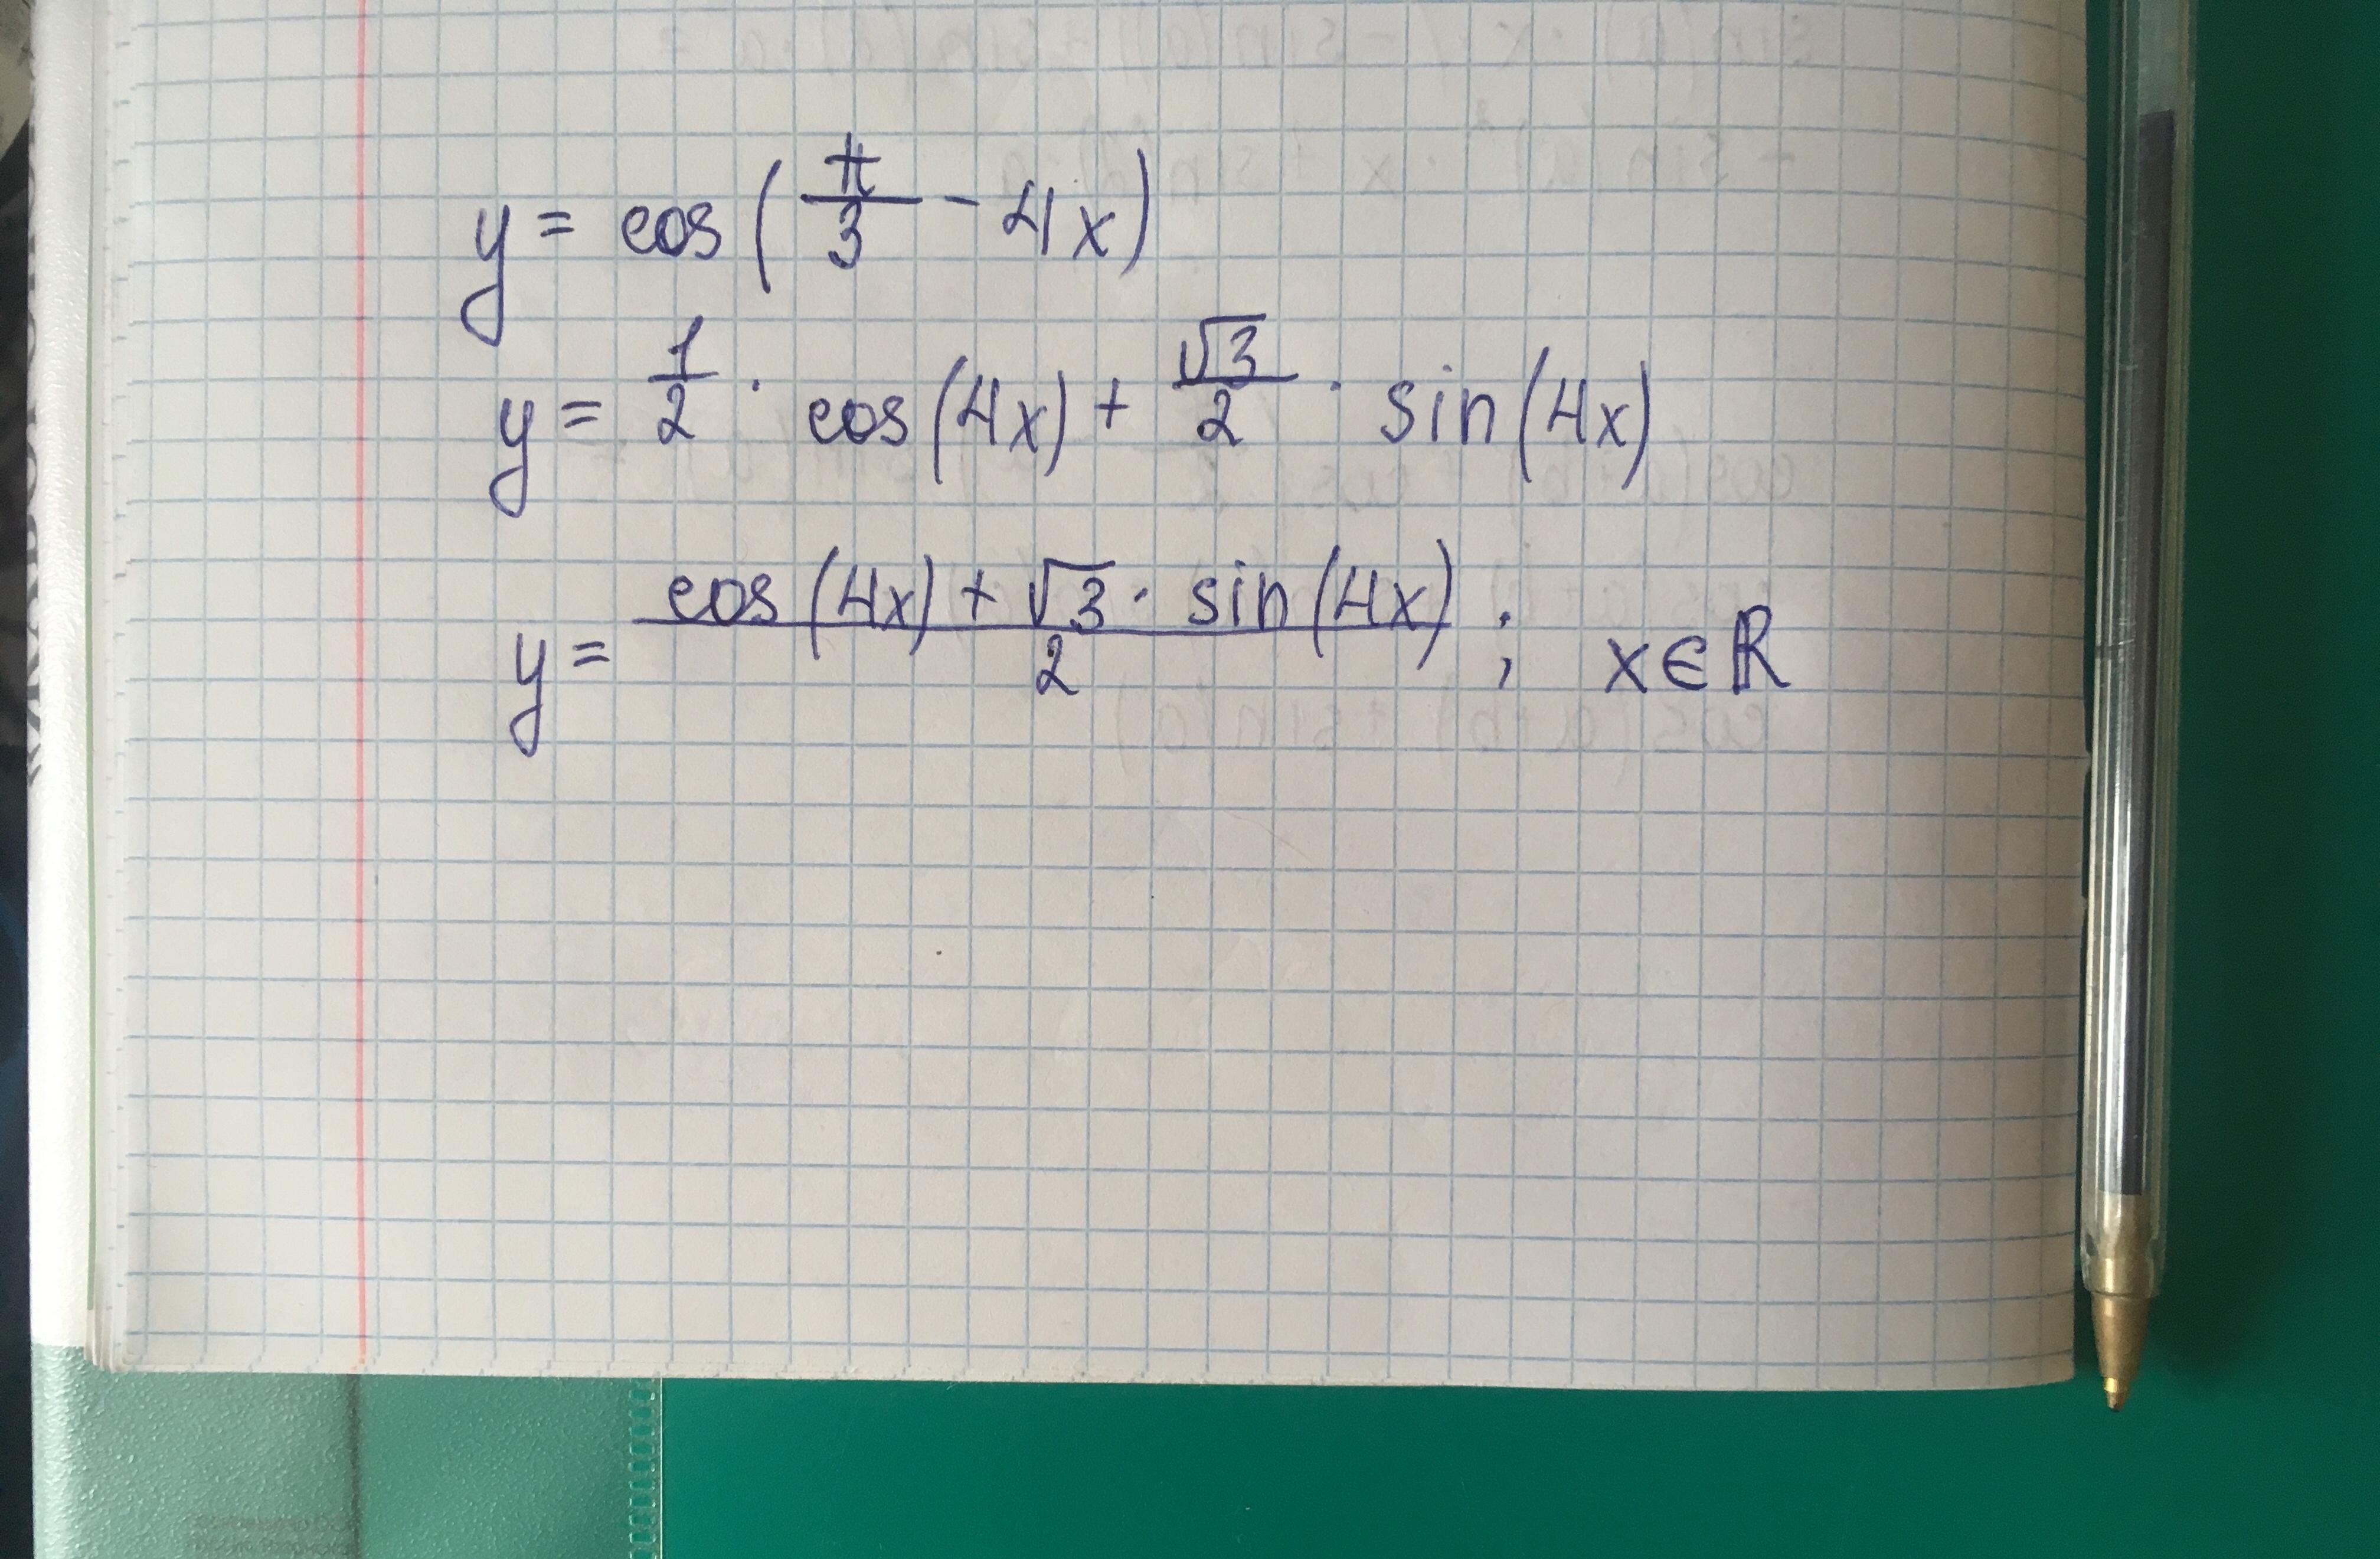 y = cos(π/3 - 4x)
y = 1/2 · cos(4x) + √3/2 · sin(4x)
y = (cos(4x) + √3 · sin(4x))/2 ; x∈ℝ